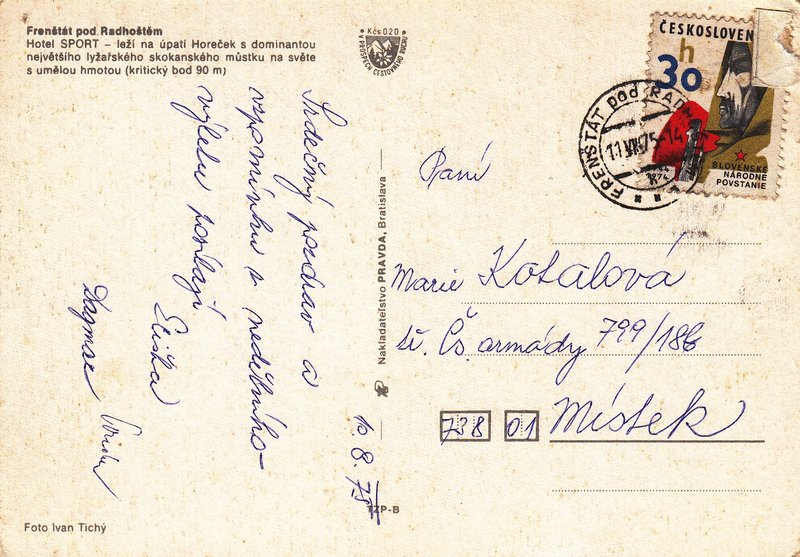 Frenštát pod Radhoštěm
Hotel SPORT – leží na úpatí Horeček s dominantou
největšího lyžařského skokanského můstku na světe
s umělou hmotou (kritický bod 90 m)
Kčs 020
V PROSPĚCH CESTOVNÉHO RUCHU
Srdečný pozdrav a
vzpomínku z nedělního
výletu posílají
Eliška
Dagmar
10. 8. 75
Nakladatelství PRAVDA, Bratislava
TZP-B
Foto Ivan Tichý
ČESKOSLOVEN
h
30
SLOVENSKÉ
NÁRODNÉ
POVSTANIE
FRENŠTÁT pod RADH
11.VIII.75-14
Paní
Marie Kotalová
tř. Čs. armády 799/186
738 01 Místek